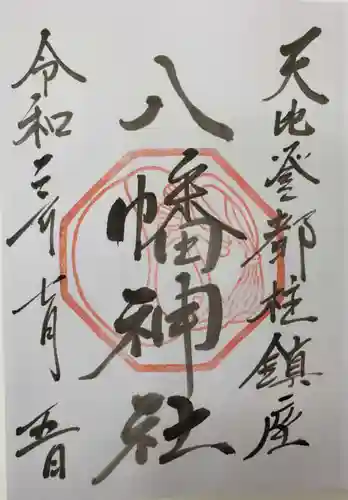 天比登都柱鎮座
八幡神社
令和二年七月五日